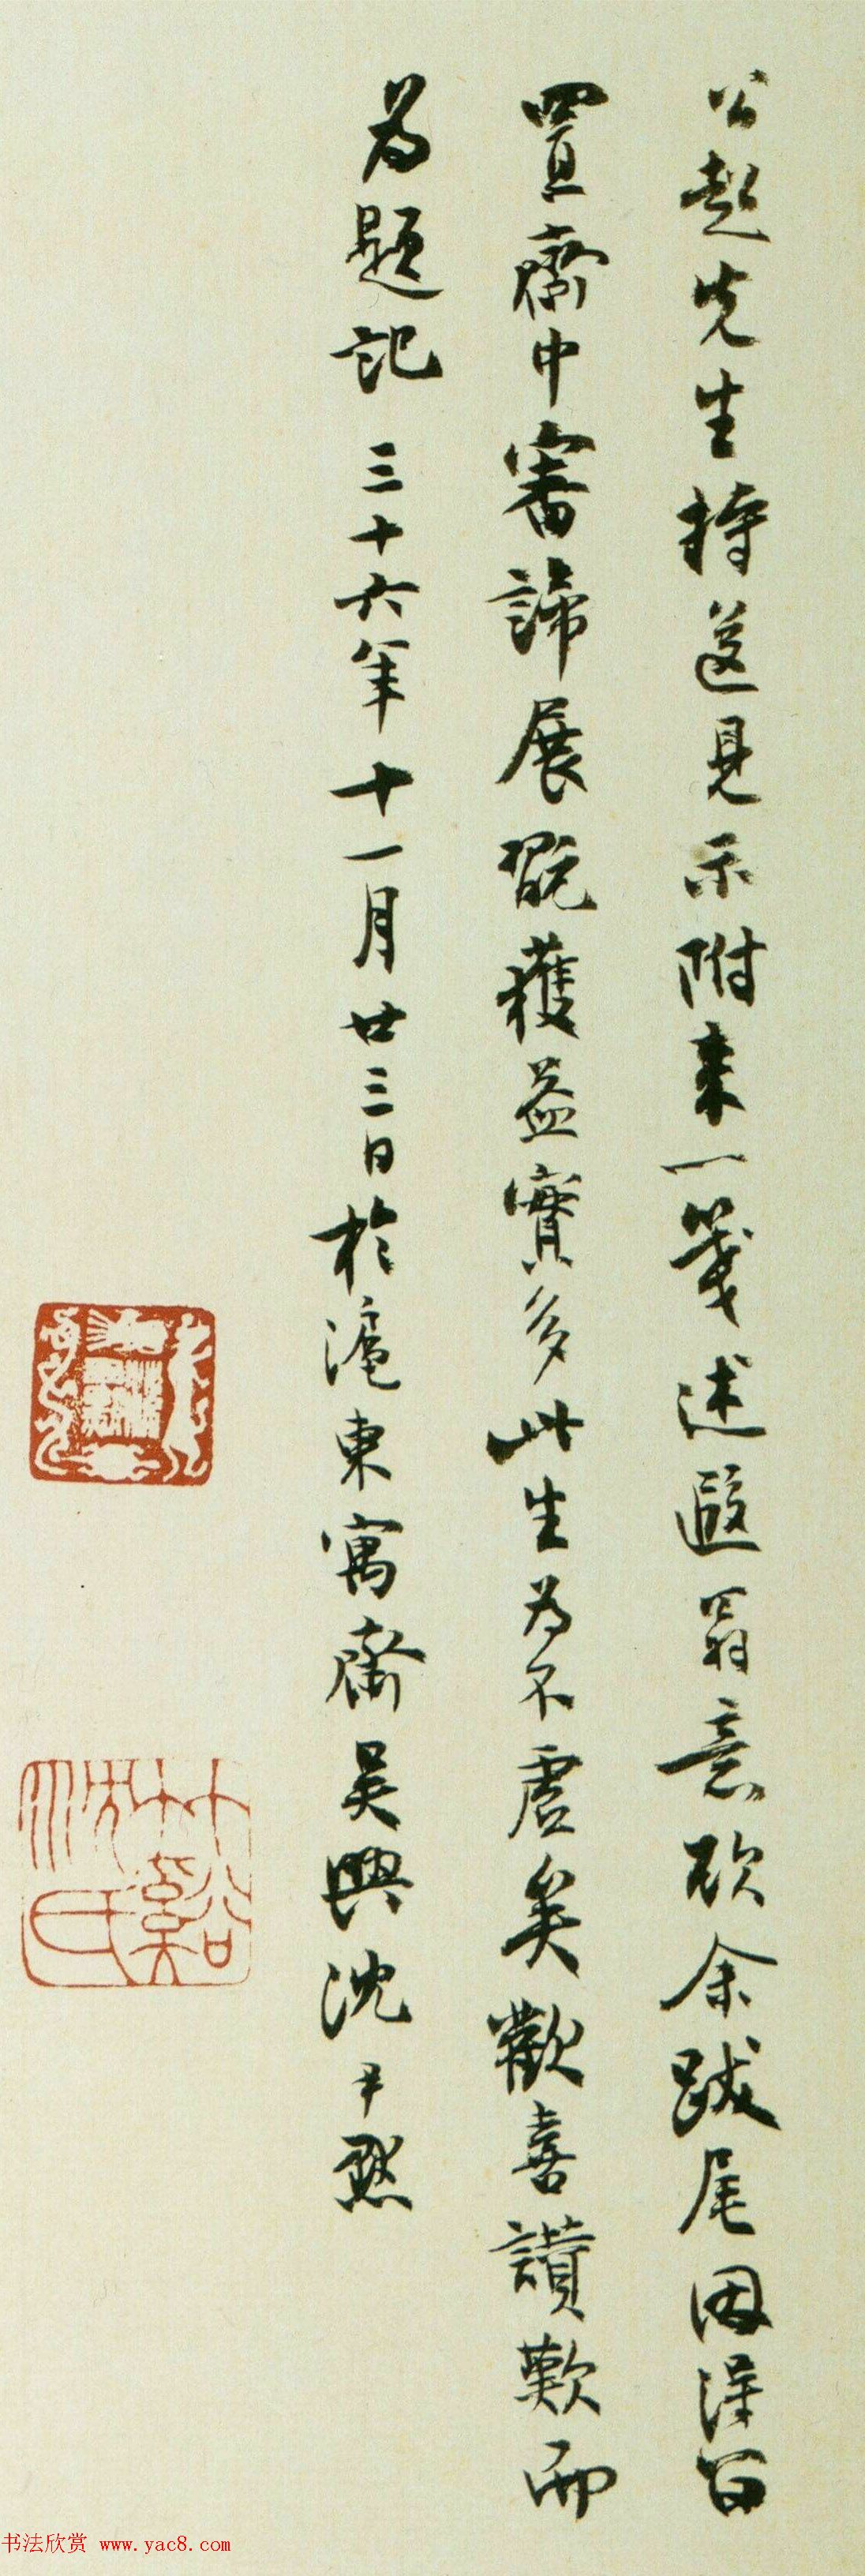 公超先生持送見示附来一箋述遐翁意欲余跋尾因得留
置齋中審諦展翫獲益實多此生為不虛矣歡喜讚歎而
為題記 三十六年十一月廿三日於滬東寓齋吳興沈尹默
竹谿沈氏
书法欣赏 www.yac8.com